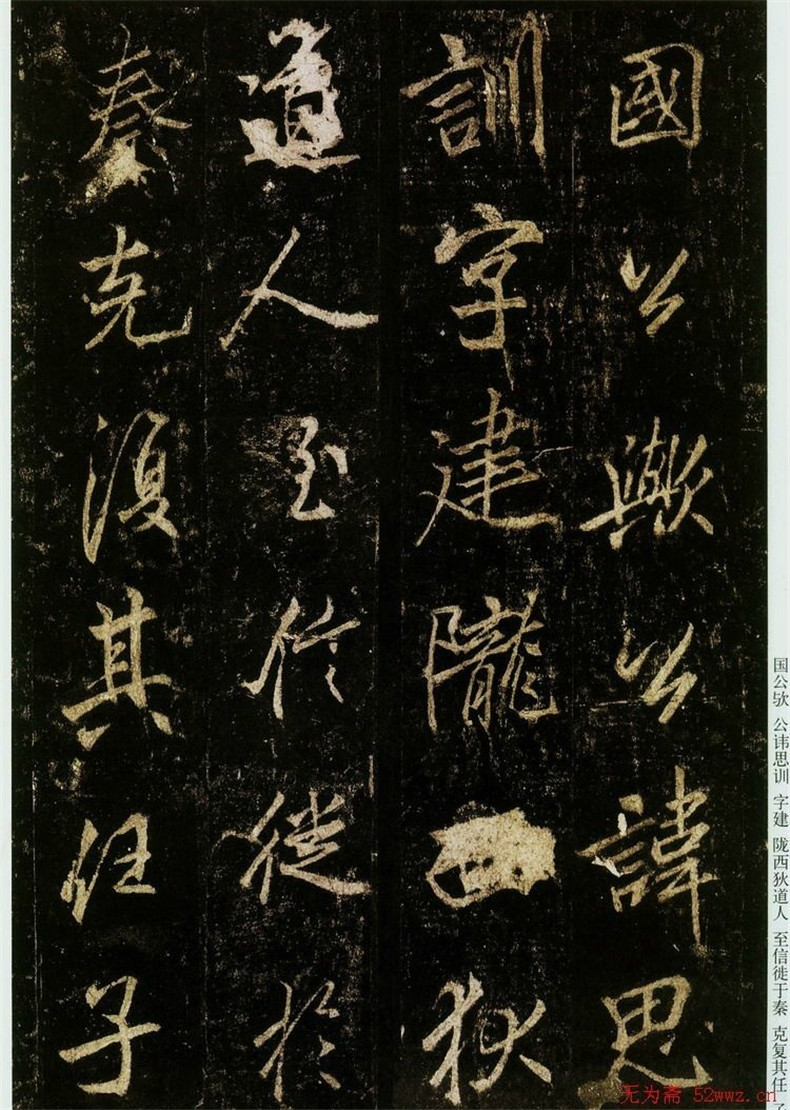 國公歟公諱思
訓字建隴西狄
道人至信徙於
秦克復其任子
国公欤 公讳思训 字建 陇西狄道人 至信徙于秦 克复其任
无为斋 52wwz.cn